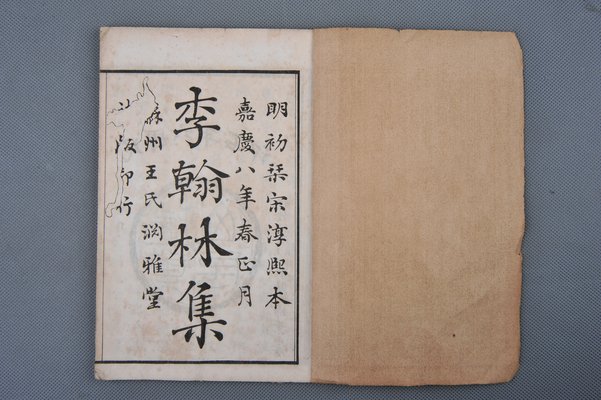 明初栞宋淳熙本
嘉慶八年春正月
李翰林集
蘇州王氏淵雅堂
版印行